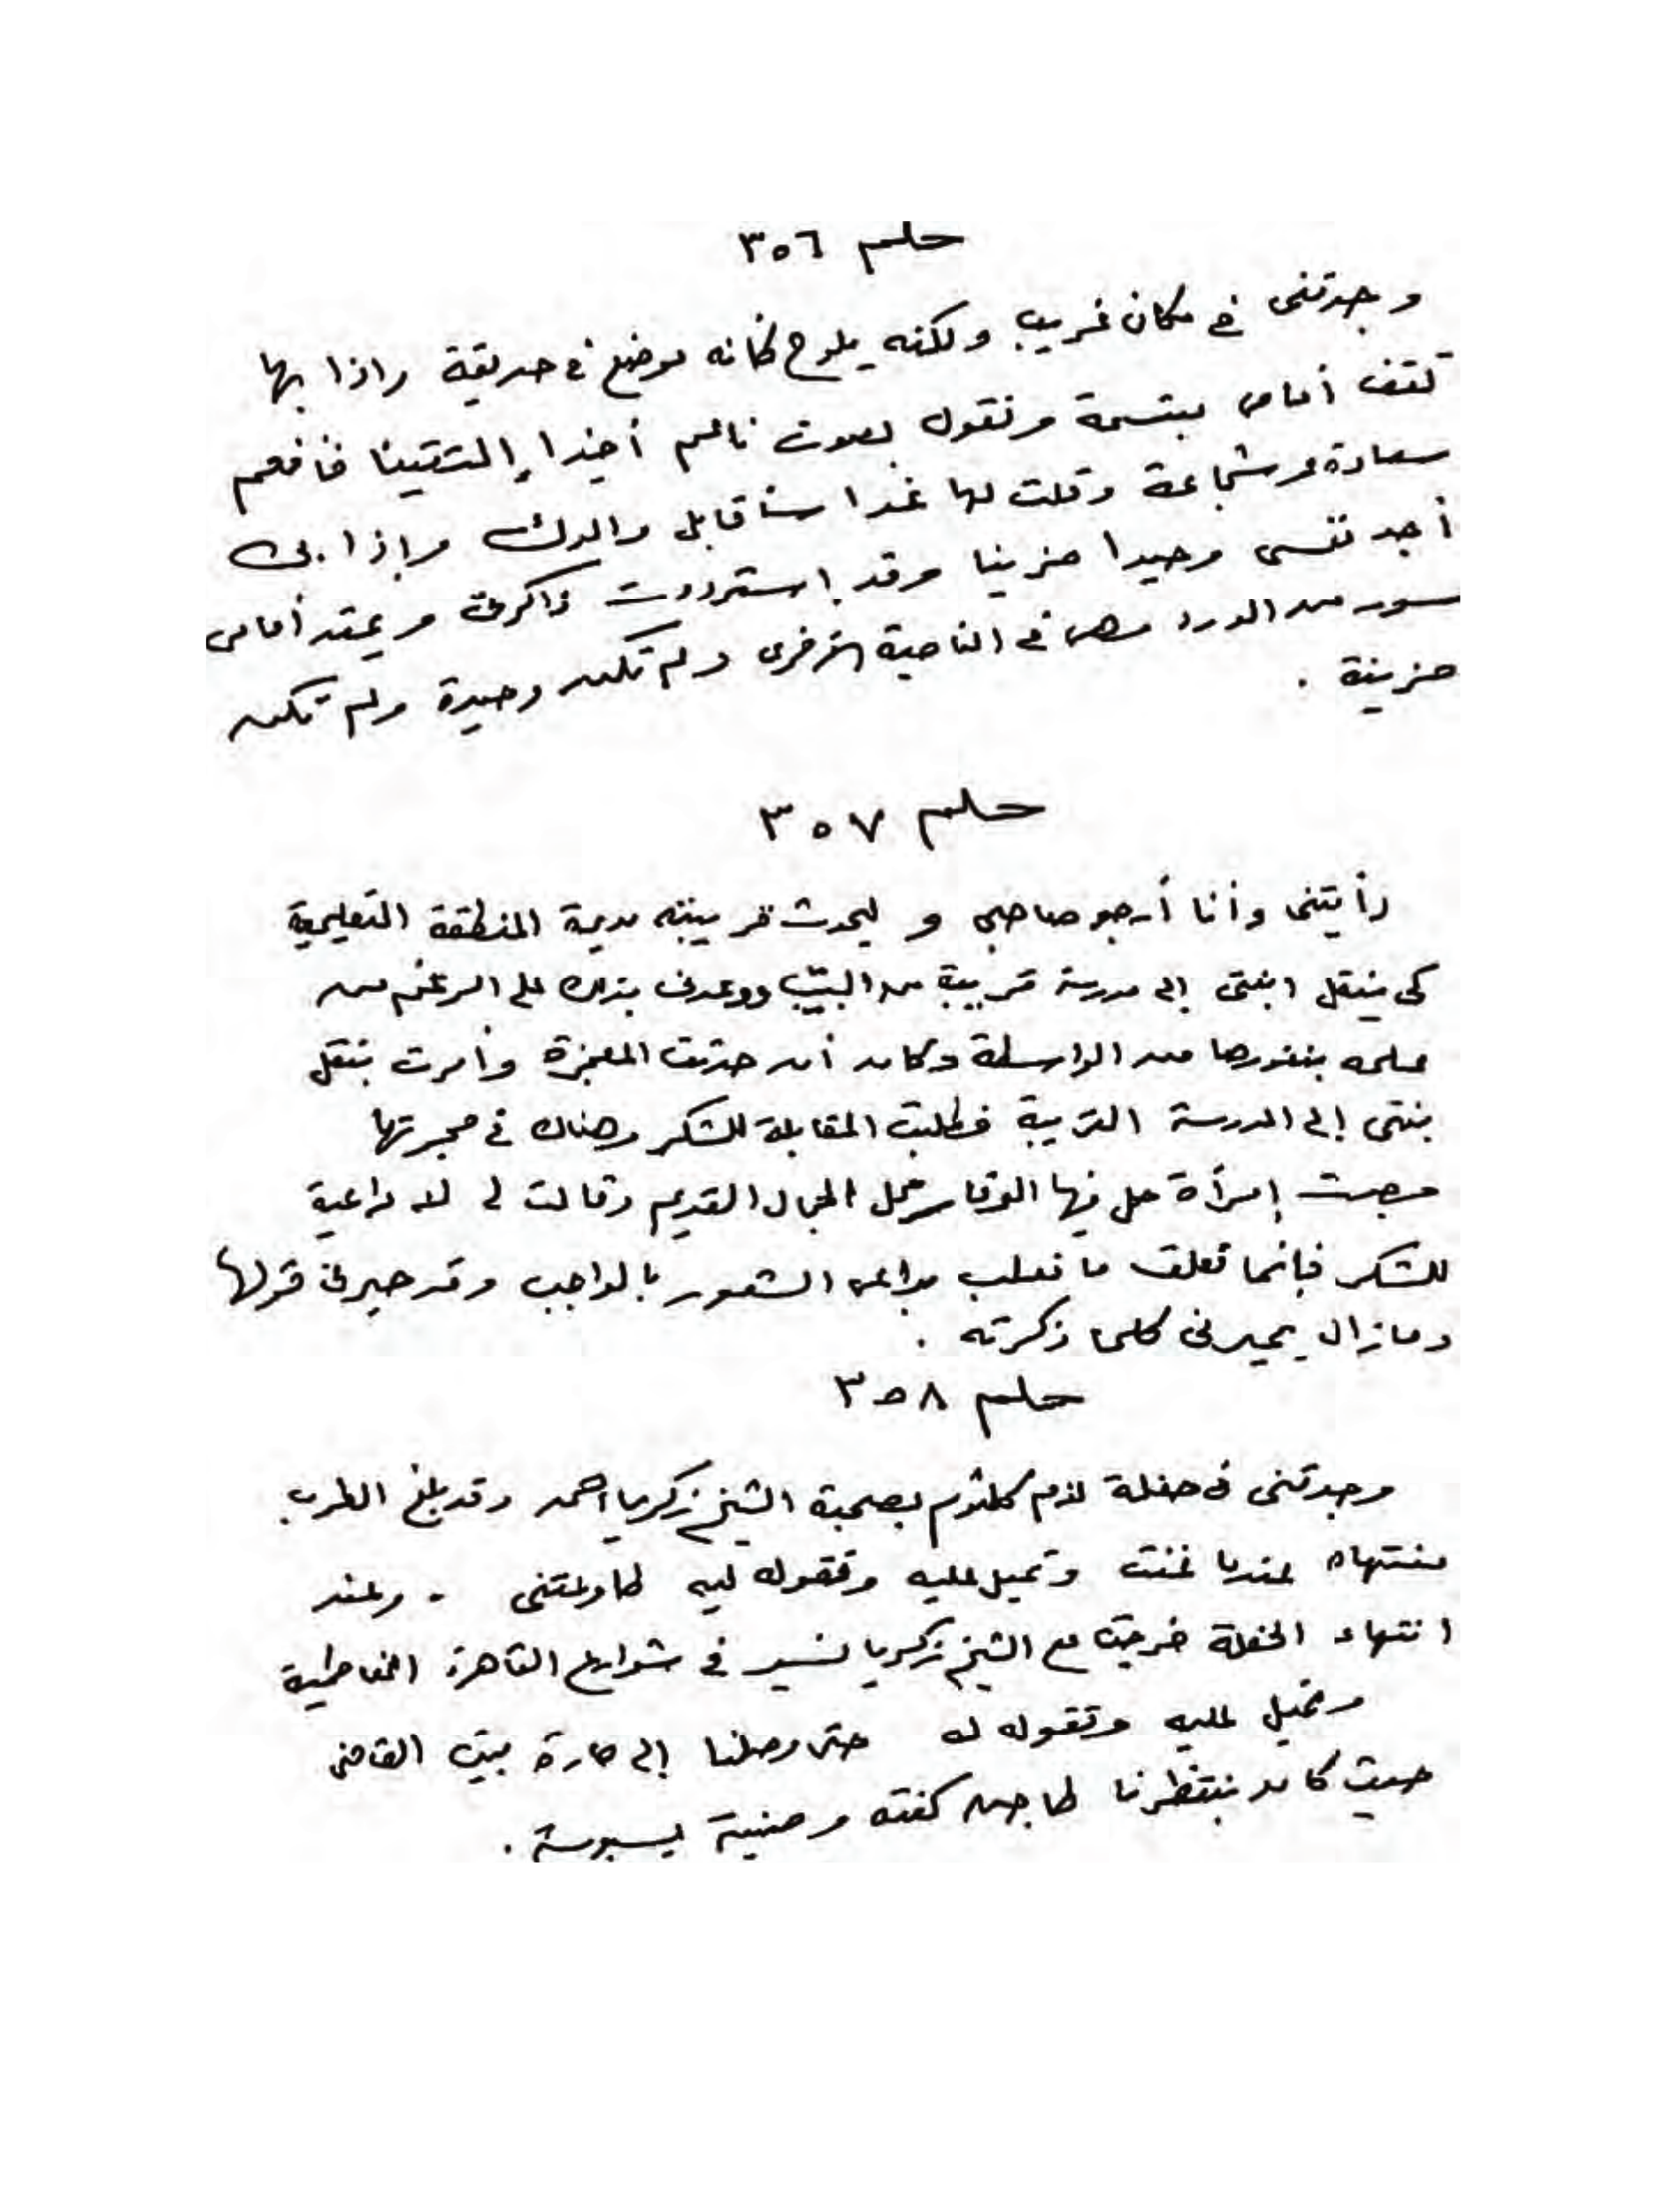 حلم ٣٥٦
وجدتنى فى مكان غريب ولكنه يلوح كأنه موضع فى حديقة وإذا بها
تقف أمامى مبتسمة وتقول بصوت ناعم أخيرا إلتقينا فأفعم
سعادة وشجاعة وقلت لها غدا سأقابل والدك وإذا بى
أجد نفسى وحيدا حزينا وقد استرددت ذاكرتى ويمتد أمامى
سور من الورد وهى فى الناحية الأخرى ولم تكن وحيدة ولم تكن
حزينة .
حلم ٣٥٧
رأيتنى وأنا أرجو صاحبى و ليحدث قريبته مديرة المنطقة التعليمية
كى ينقل ابنتى إلى مدرسة قريبة من البيت ووعدنى بذلك على الرغم من
علمه بنفورها من الواسطة وكان أن حدثت المعجزة وأمرت بنقل
بنتى إلى المدرسة القريبة فطلبت المقابلة للشكر وهناك فى حجرتها
وجدت إمرأة حل فيها الوقار محل الجمال القديم وقالت لى لا داعية
للشكر فإنما فعلت ما فعلت بداعى الشعور بالواجب وقد حيرنى قولها
ومازال يحيرنى كلما ذكرته .
حلم ٣٥٨
وجدتنى فى حفلة لأم كلثوم بصحبة الشيخ زكريا أحمد وقد بلغ الطرب
منتهاه عندما غنت وتميل عليه وتقوله ليه طاوعتنى . وعند
انتهاء الحفلة خرجت مع الشيخ زكريا نسير فى شوارع القاهرة الفاطمية
وتميل عليه وتقوله له حتى وصلنا إلى حارة بيت القاضى
حيث كان ينتظرنا طاجن كفته وصنية بسبوسة .